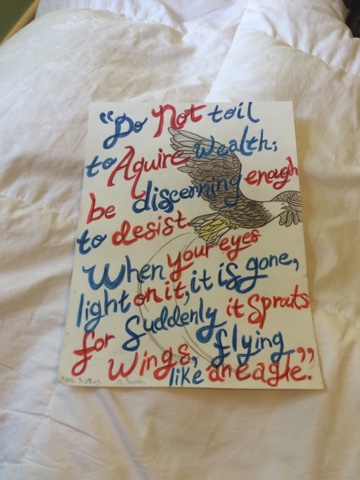 "Do Not toil
to Aquire wealth;
be discerning enough
to desist
When your eyes
light on it, it is gone,
Suddenly it Sprouts
for Wings, flying
like an eagle."